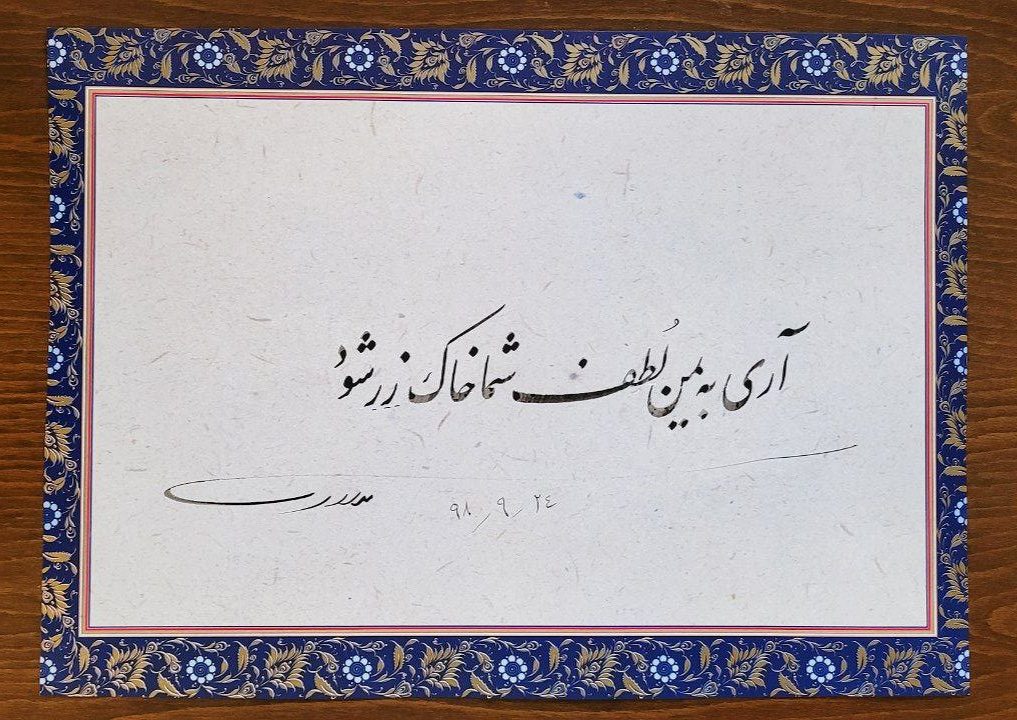 آری به یمن لُطف شما خاک زر شود
۹۸/۹/۲٤